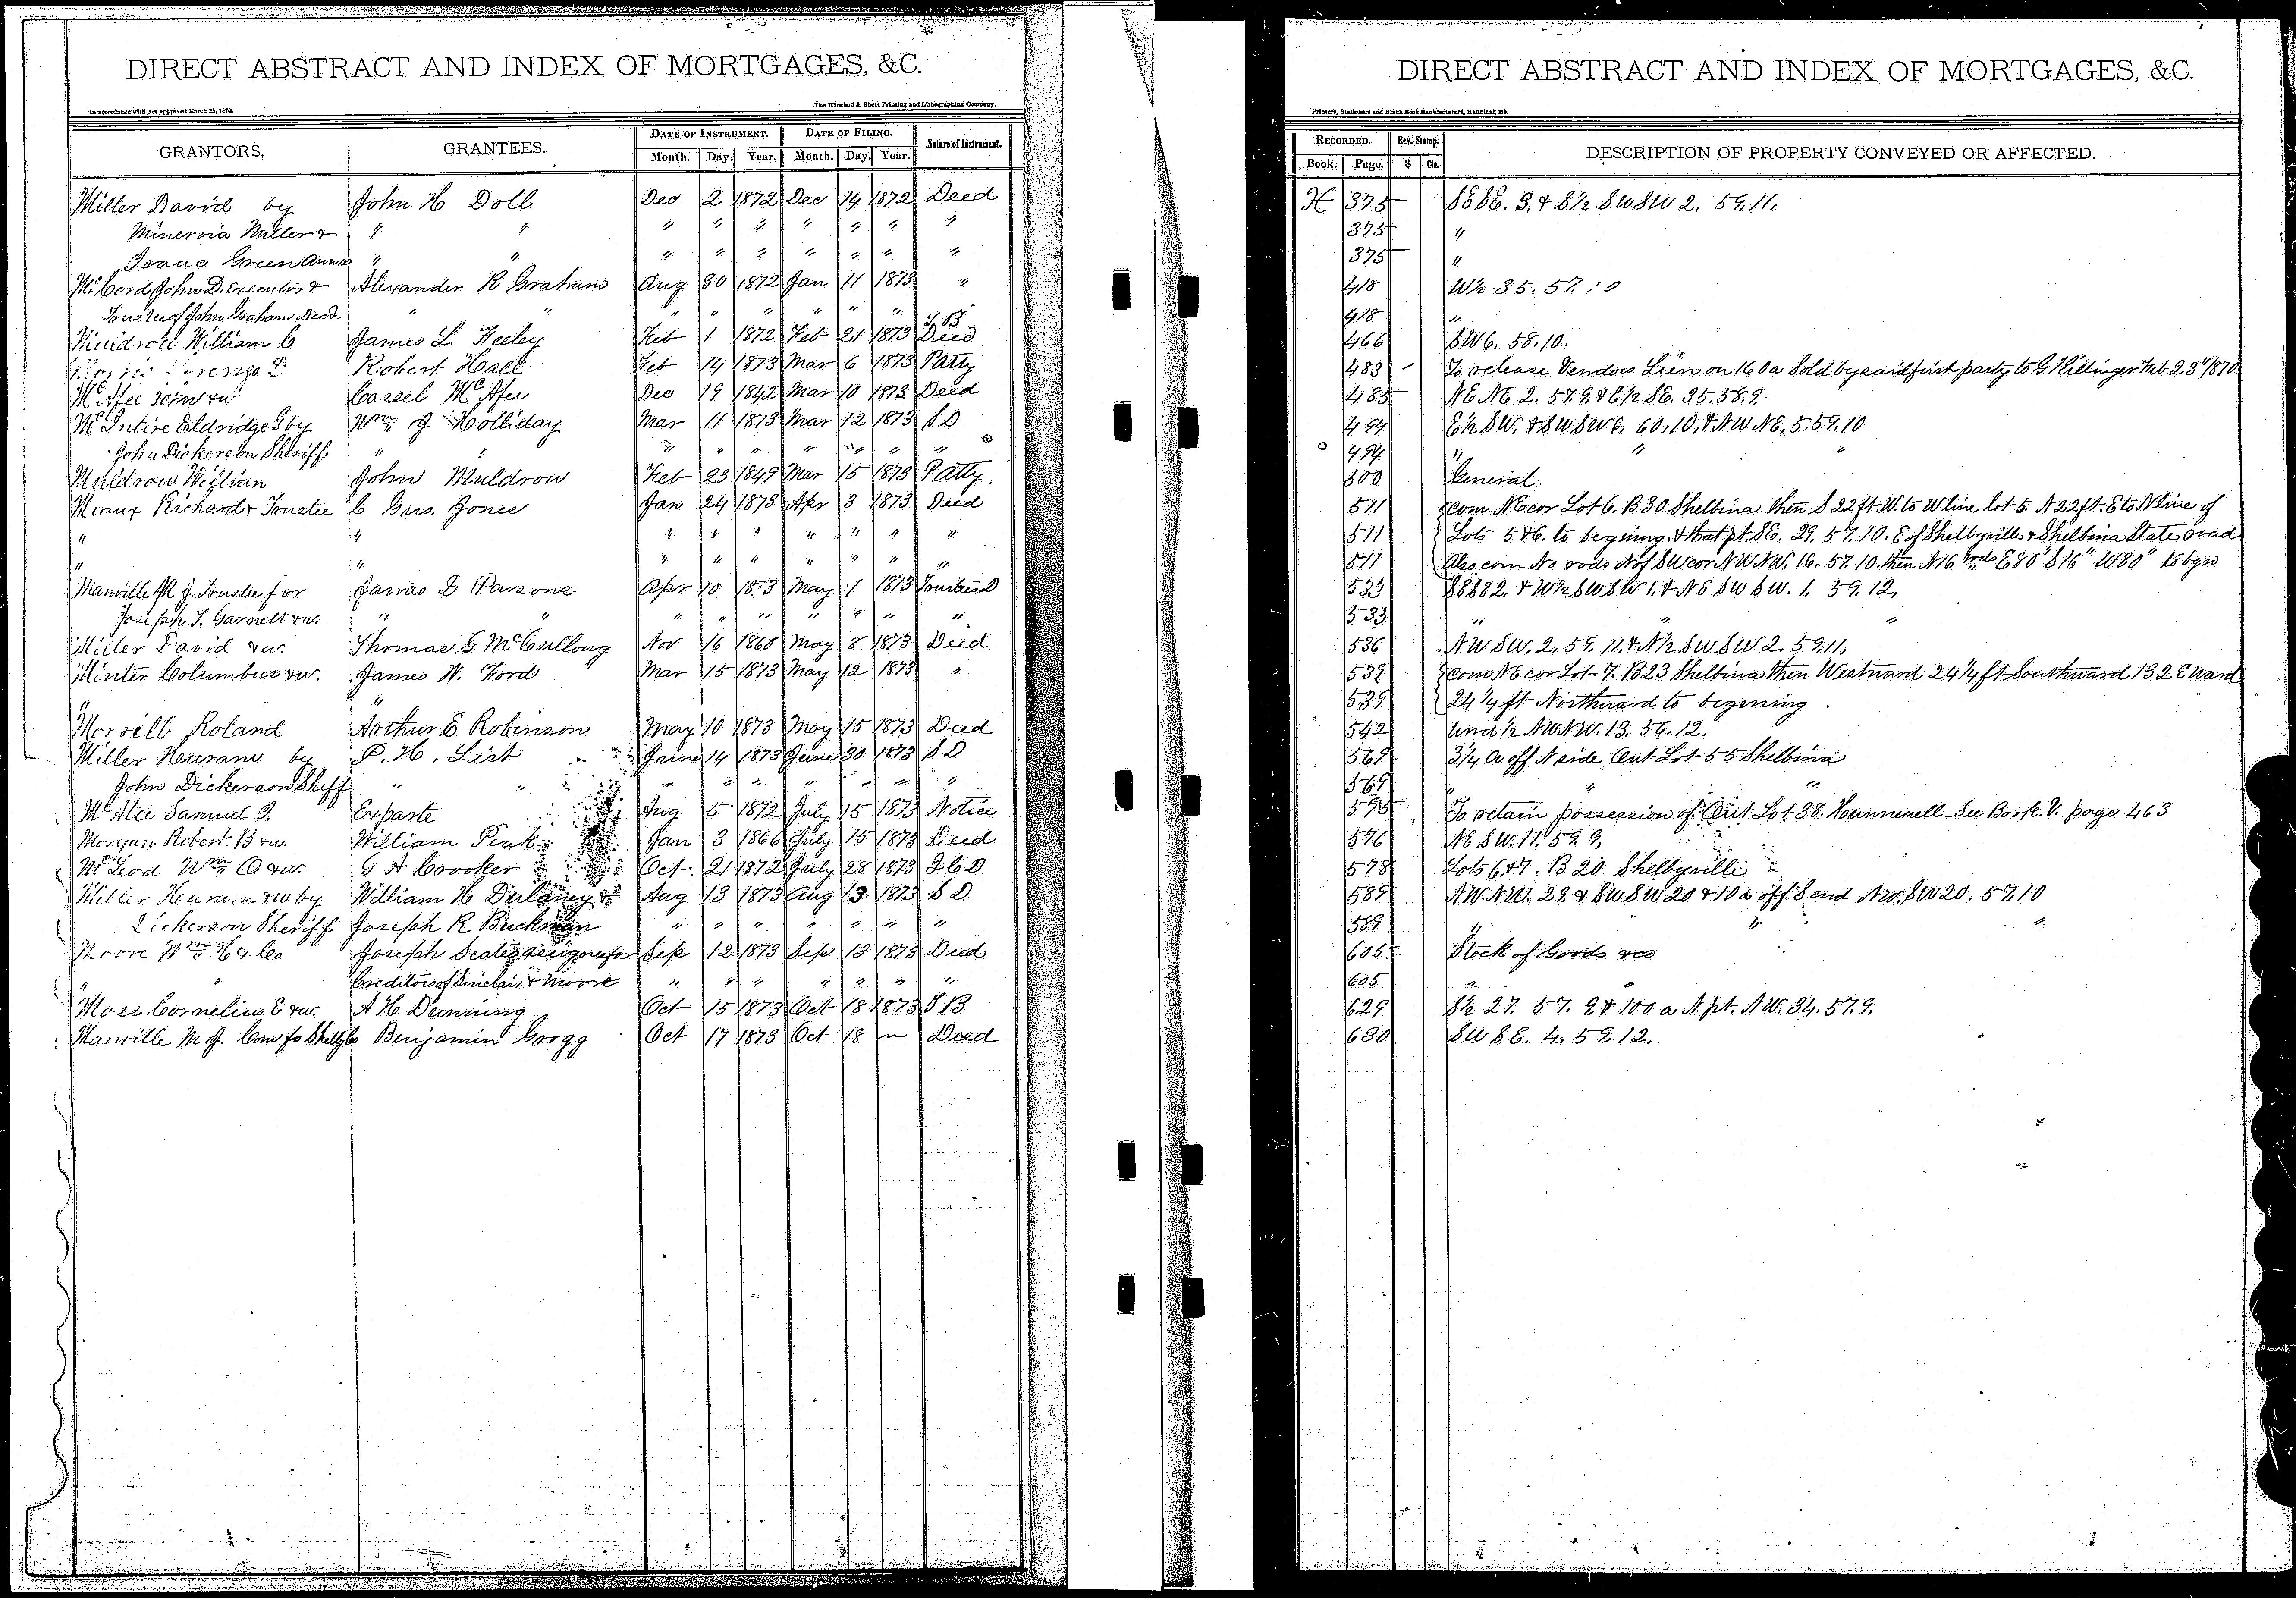 DIRECT ABSTRACT AND INDEX OF MORTGAGES, &C.
In accordance with Act approved March 25, 1870.
The Winchell & Ebert Printing and Lithographing Company,
GRANTORS. GRANTEES. DATE OF INSTRUMENT. DATE OF FILING. Nature of Instrument.
Month. Day. Year. Month. Day. Year.
Miller David by John H Doll Dec 2 1872 Dec 14 1872 Deed
Minervia Miller & " " " " " " " " "
Isaac Green " " " " " " " " "
McCord John D. Executor & Alexander R Graham Aug 30 1872 Jan 11 1873 "
Trustee of John Graham Decd. " " " " " " " "
Muldrow William C James L. Neeley Feb 1 1872 Feb 21 1873 T B Deed
Robert Hall Feb 14 1873 Mar 6 1873 Patty
McAfee John & w Cassel McAfee Dec 19 1842 Mar 10 1873 Deed
McIntire Eldridge G by Wm J Holliday Mar 11 1873 Mar 12 1873 S D
John Dickerson Sheriff " " " " " " " "
Muldrow William John Muldrow Feb 23 1849 Mar 15 1873 Patty.
Meaux Richard & Trustee C Gus. Jones Jan 24 1873 Apr 3 1873 Deed
" " " " " " " " "
" " " " " " " " "
Manville M J. Trustee for James D Parsons Apr 10 1873 May 1 1873 Trustees D
Joseph T. Garnett & w. " " " " " " " "
Miller David & w. Thomas G McCullong Nov 16 1860 May 8 1873 Deed
Minter Columbus & w. James W. Ford Mar 15 1873 May 12 1873 "
" "
Morrill Roland Arthur E Robinson May 10 1873 May 15 1873 Deed
Miller Heuranu by P. H. List June 14 1873 June 30 1873 S D
John Dickerson Sheff " " " " " " " " "
McAtee Samuel J. Exparte Aug 5 1872 July 15 1873 Notice
Morgan Robert B & w. William Peak Jan 3 1866 July 15 1873 Deed
McLeod Wm O & w. G A Crooker Oct 21 1872 July 28 1873 Q C D
Miller & w by William H Dulaney & Aug 13 1873 Aug 13 1873 S D
Dickerson Sheriff Joseph R Buckman " " " " " " "
Moore Wm H & Co Joseph Scates assignee for Sep 12 1873 Sep 13 1873 Deed
" " Creditors of Sinclair & Moore " " " " " " "
Moss Cornelius E & w. A H Dunning Oct 15 1873 Oct 18 1873 T B
Manville M J. Com for Shelby Co Benjamin Grogg Oct 17 1873 Oct 18 " Deed
DIRECT ABSTRACT AND INDEX OF MORTGAGES, &C.
Printers, Stationers and Blank Book Manufacturers, Hannibal, Mo.
RECORDED. Rev. Stamp. DESCRIPTION OF PROPERTY CONVEYED OR AFFECTED.
Book. Page. $ Cts.
H 375 SESE. 3. & S½ SWSW 2. 59.11.
375 "
375 "
418 W½ 35. 57. 10
418 "
466 SW6. 58. 10.
483 To release Vendors Lien on 160a Sold by said first party to G Killinger Feb 23d/1870
485 NE NE 2. 57. 9. & E½ SE. 35. 58. 9
494 E½ SW. & SWSW 6. 60, 10, & NW NE. 5. 59. 10
494 " " "
500 General.
511 com NE cor Lot 6. B 30 Shelbina then S 22ft. W. to W line lot 5. N 22ft. E to N line of
511 Lots 5 & 6. to begining. & that pt. SE. 29. 57. 10. E of Shelbyville & Shelbina State road
511 Also com No rods N of SW cor NW NW. 16. 57. 10. then N 16 rods E 80" S 16" W 80" to bgn
533 SESE2. & W½ SWSW 1. & NE SW SW. 1. 59. 12.
533 " "
536 NW SW. 2. 59. 11. & N½ SW SW 2. 59.11.
539 com NE cor Lot 7. B23 Shelbina then Westward 24¼ ft Southward 132 E Ward
539 24¼ ft Northward to begening.
542 und ½ NWNW. 13. 56. 12.
569 3¼ a off N side Out Lot 55 Shelbina
569 " "
575 To retain possession of Out Lot 38. Hunnewell. See Book. V. page 463
576 NE SW. 11. 59. 9.
578 Lots 6 & 7. B 20 Shelbyville
589 NW.NW. 29. & SWSW 20 & 10 a off S end NW. SW 20. 57.10
589 " " "
605 Stock of Goods &c
605 "
629 S½ 27. 57. 9. & 100 a N pt. NW. 34. 57. 9.
630 SW SE. 4. 59. 12.